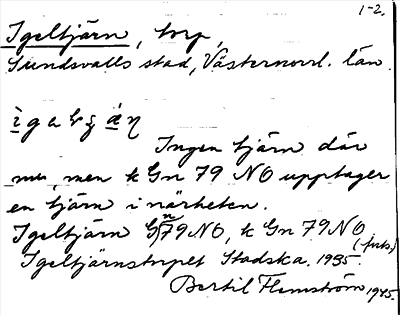 1-2.
Igeltjärn, torp,
Sundsvalls stad, Västernorrl. län
Ingen tjärn där
nu, men k Gn 79 NO upptager
en tjärn i närheten.
Igeltjärn Gn 79 NO, k Gn 79 NO
(forts)
Igeltjärnstorpet Stadska. 1935.
Bertil Flemström 1945.